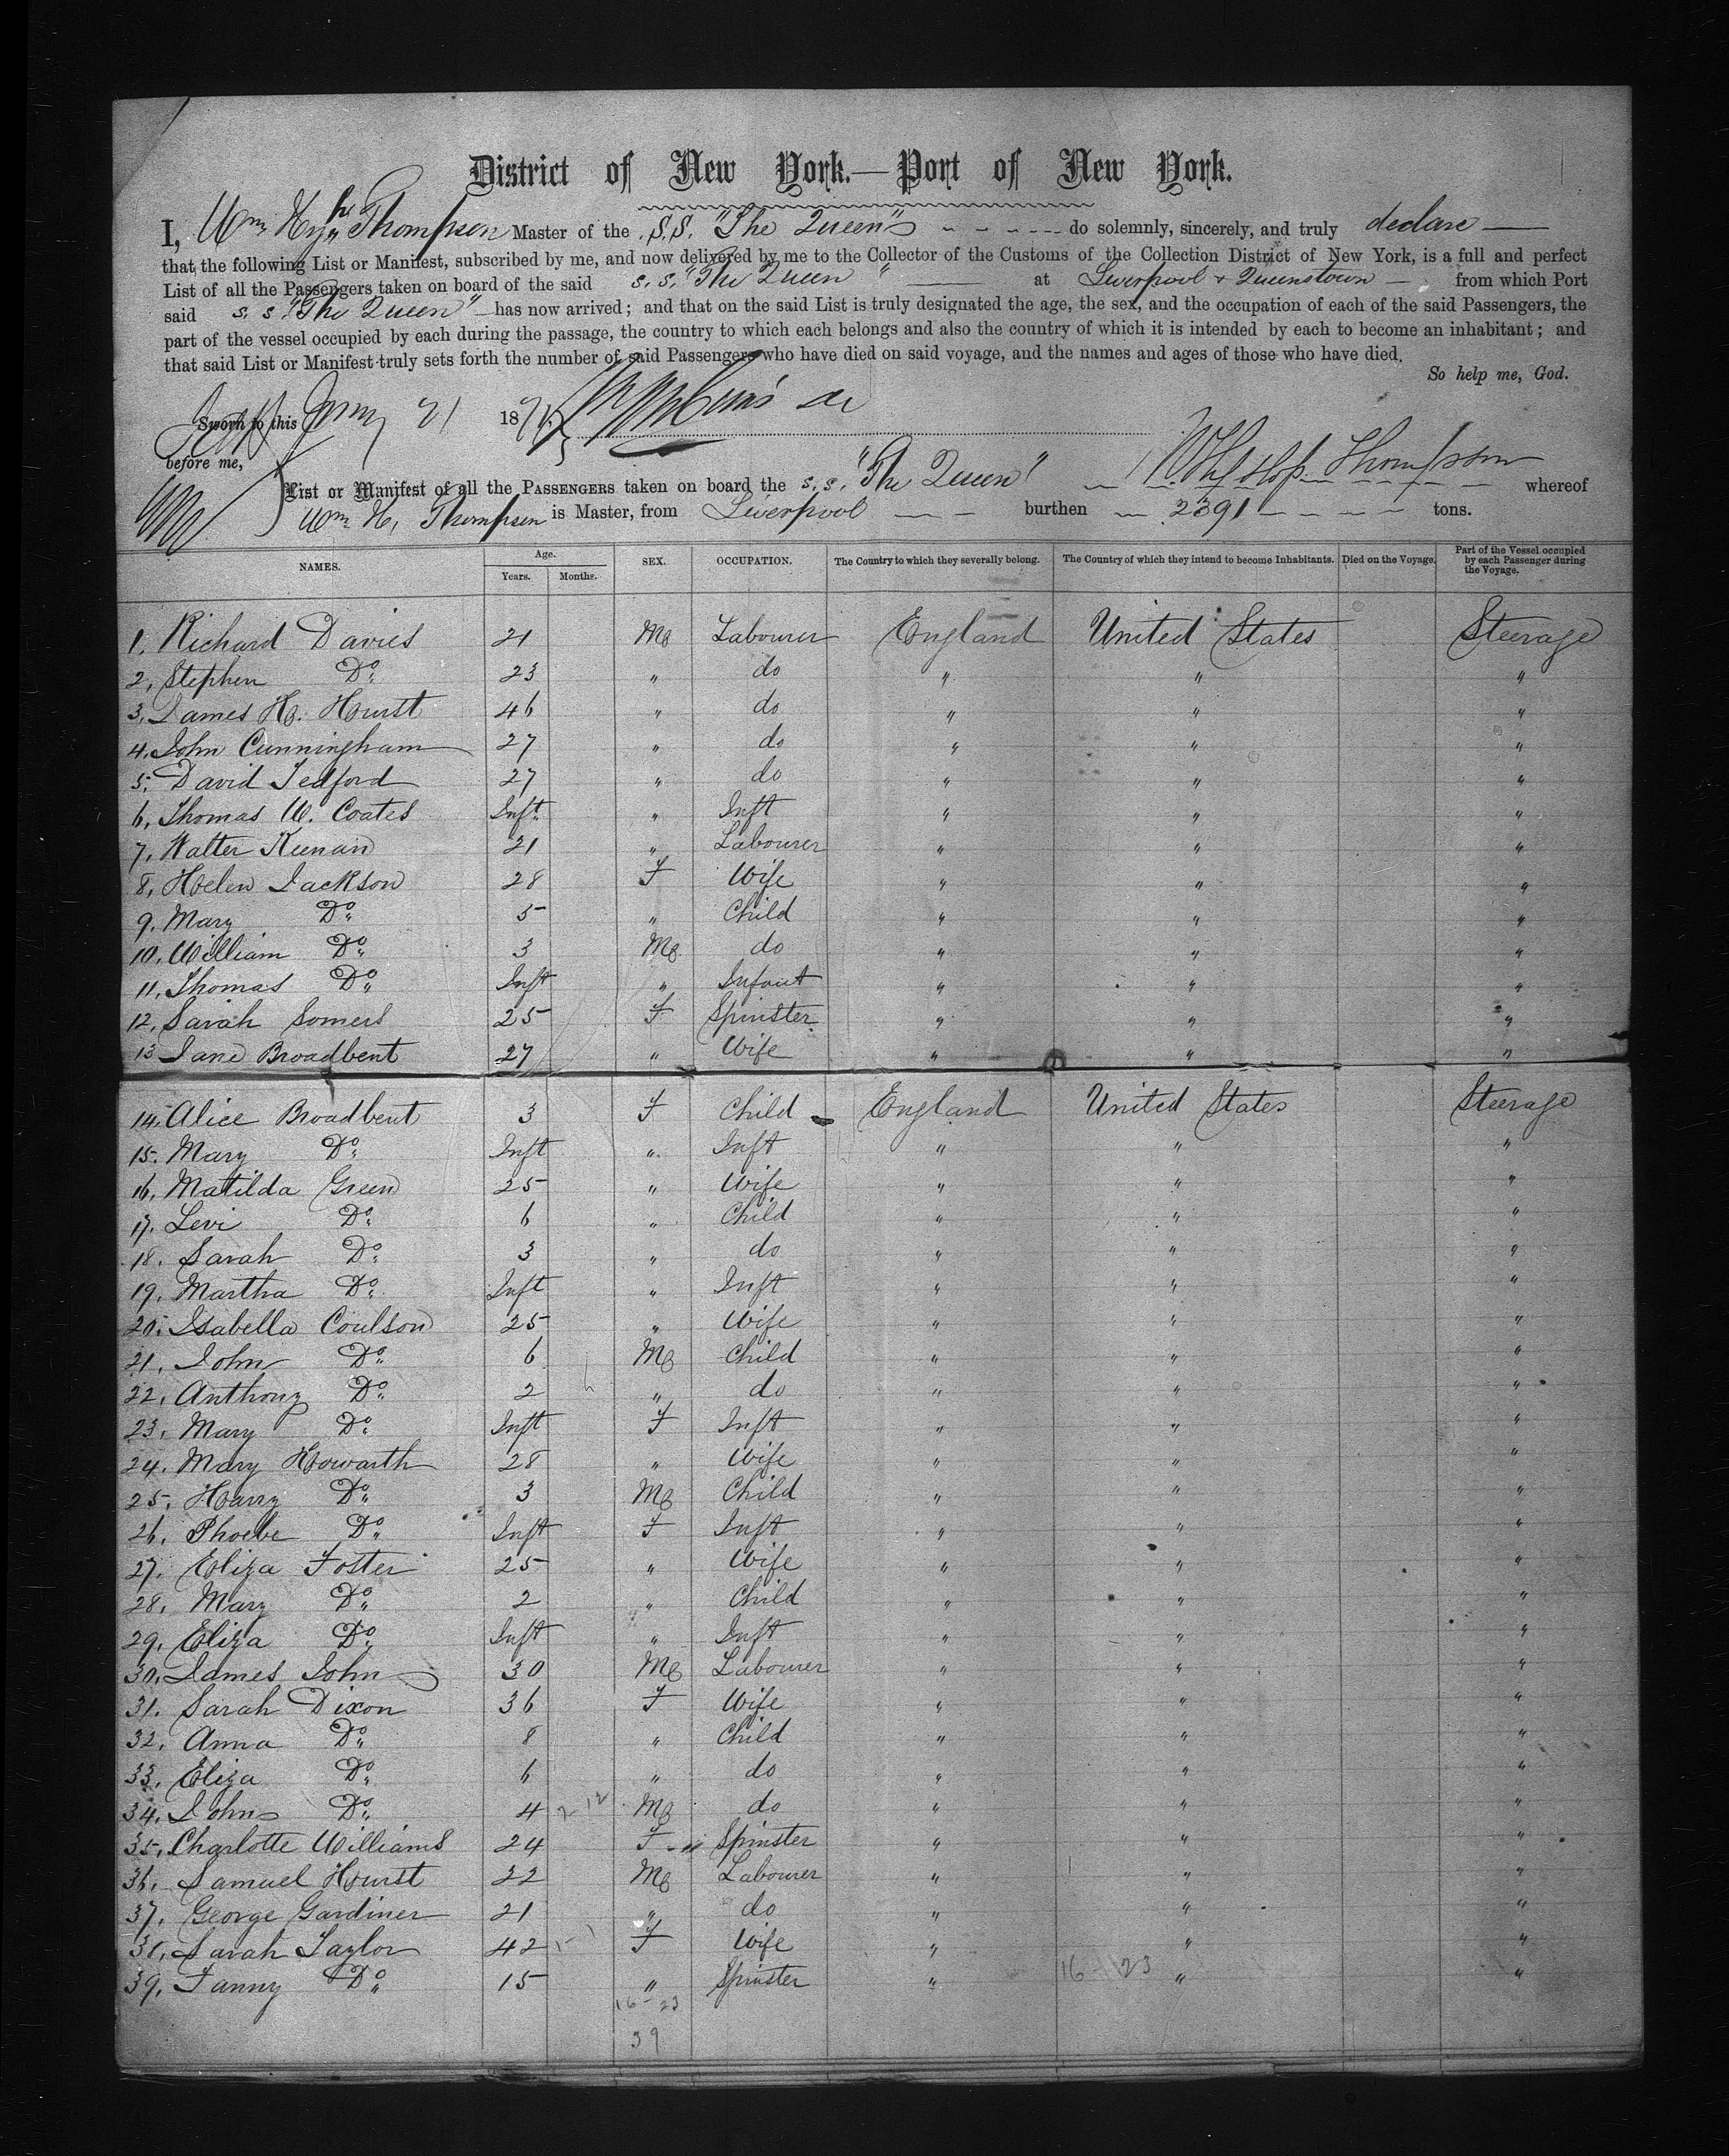 District of New York.—Port of New York.
I, Wm Thompson Master of the S.S. "The Queen" do solemnly, sincerely, and truly declare
that the following List or Manifest, subscribed by me, and now delivered by me to the Collector of the Customs of the Collection District of New York, is a full and perfect
List of all the Passengers taken on board of the said s.s. "The Queen" at Liverpool & Queenstown from which Port
said s.s. "The Queen" has now arrived; and that on the said List is truly designated the age, the sex, and the occupation of each of the said Passengers, the
part of the vessel occupied by each during the passage, the country to which each belongs and also the country of which it is intended by each to become an inhabitant; and
that said List or Manifest truly sets forth the number of said Passengers who have died on said voyage, and the names and ages of those who have died.
So help me, God.
Sworn to this 21 187
before me,
List or Manifest of all the PASSENGERS taken on board the s.s. "The Queen" Thompson whereof
Wm H. Thompson is Master, from Liverpool burthen 2391 tons.
NAMES. Age. Years. Months. SEX. OCCUPATION. The Country to which they severally belong. The Country of which they intend to become Inhabitants. Died on the Voyage. Part of the Vessel occupied by each Passenger during the Voyage.
1. Richard Davies 21 M Labourer England United States Steerage
2. Stephen Do 23 " do " " "
3. James H. Hurst 46 " do " " "
4. John Cunningham 27 " do " " "
5. David Tedford 27 " do " " "
6. Thomas W. Coates Inft " Inft " " "
7. Walter Keenan 21 " Labourer " " "
8. Helen Jackson 28 F Wife " " "
9. Mary Do 5 " Child " " "
10. William Do 3 M do " " "
11. Thomas Do Inft " Infant " " "
12. Sarah Somers 25 F Spinster " " "
13 Jane Broadbent 27 " Wife " " "
14. Alice Broadbent 3 F Child England United States Steerage
15. Mary Do Inft " Inft " " "
16. Matilda Green 25 " Wife " " "
17. Levi Do 6 " Child " " "
18. Sarah Do 3 " do " " "
19. Martha Do Inft " Inft " " "
20. Isabella Coulson 25 " Wife " " "
21. John Do 6 M Child " " "
22. Anthony Do 2 " do " " "
23. Mary Do Inft F Inft " " "
24. Mary Howarth 28 " Wife " " "
25. Harry Do 3 M Child " " "
26. Phoebe Do Inft F Inft " " "
27. Eliza Foster 25 " Wife " " "
28. Mary Do 2 " Child " " "
29. Eliza Do Inft " Inft " " "
30. James John 30 M Labourer " " "
31. Sarah Dixon 36 F Wife " " "
32. Anna Do 8 " Child " " "
33. Eliza Do 6 " do " " "
34. John Do 4 M do " " "
35. Charlotte Williams 24 F Spinster " " "
36. Samuel Hurst 22 M Labourer " " "
37. George Gardiner 21 " do " " "
38. Sarah Taylor 42 F Wife " " "
39. Fanny Do 15 " Spinster " 16-23 " "
16-23
39